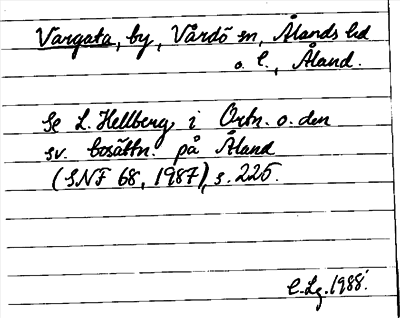 Vargata, by, Vårdö sn, Ålands hd
o. l., Åland.
Se L. Hellberg i Ortn. o. den
sv. bosättn. på Åland
(SNF 68, 1987), s. 225.
C. Lg. 1988.